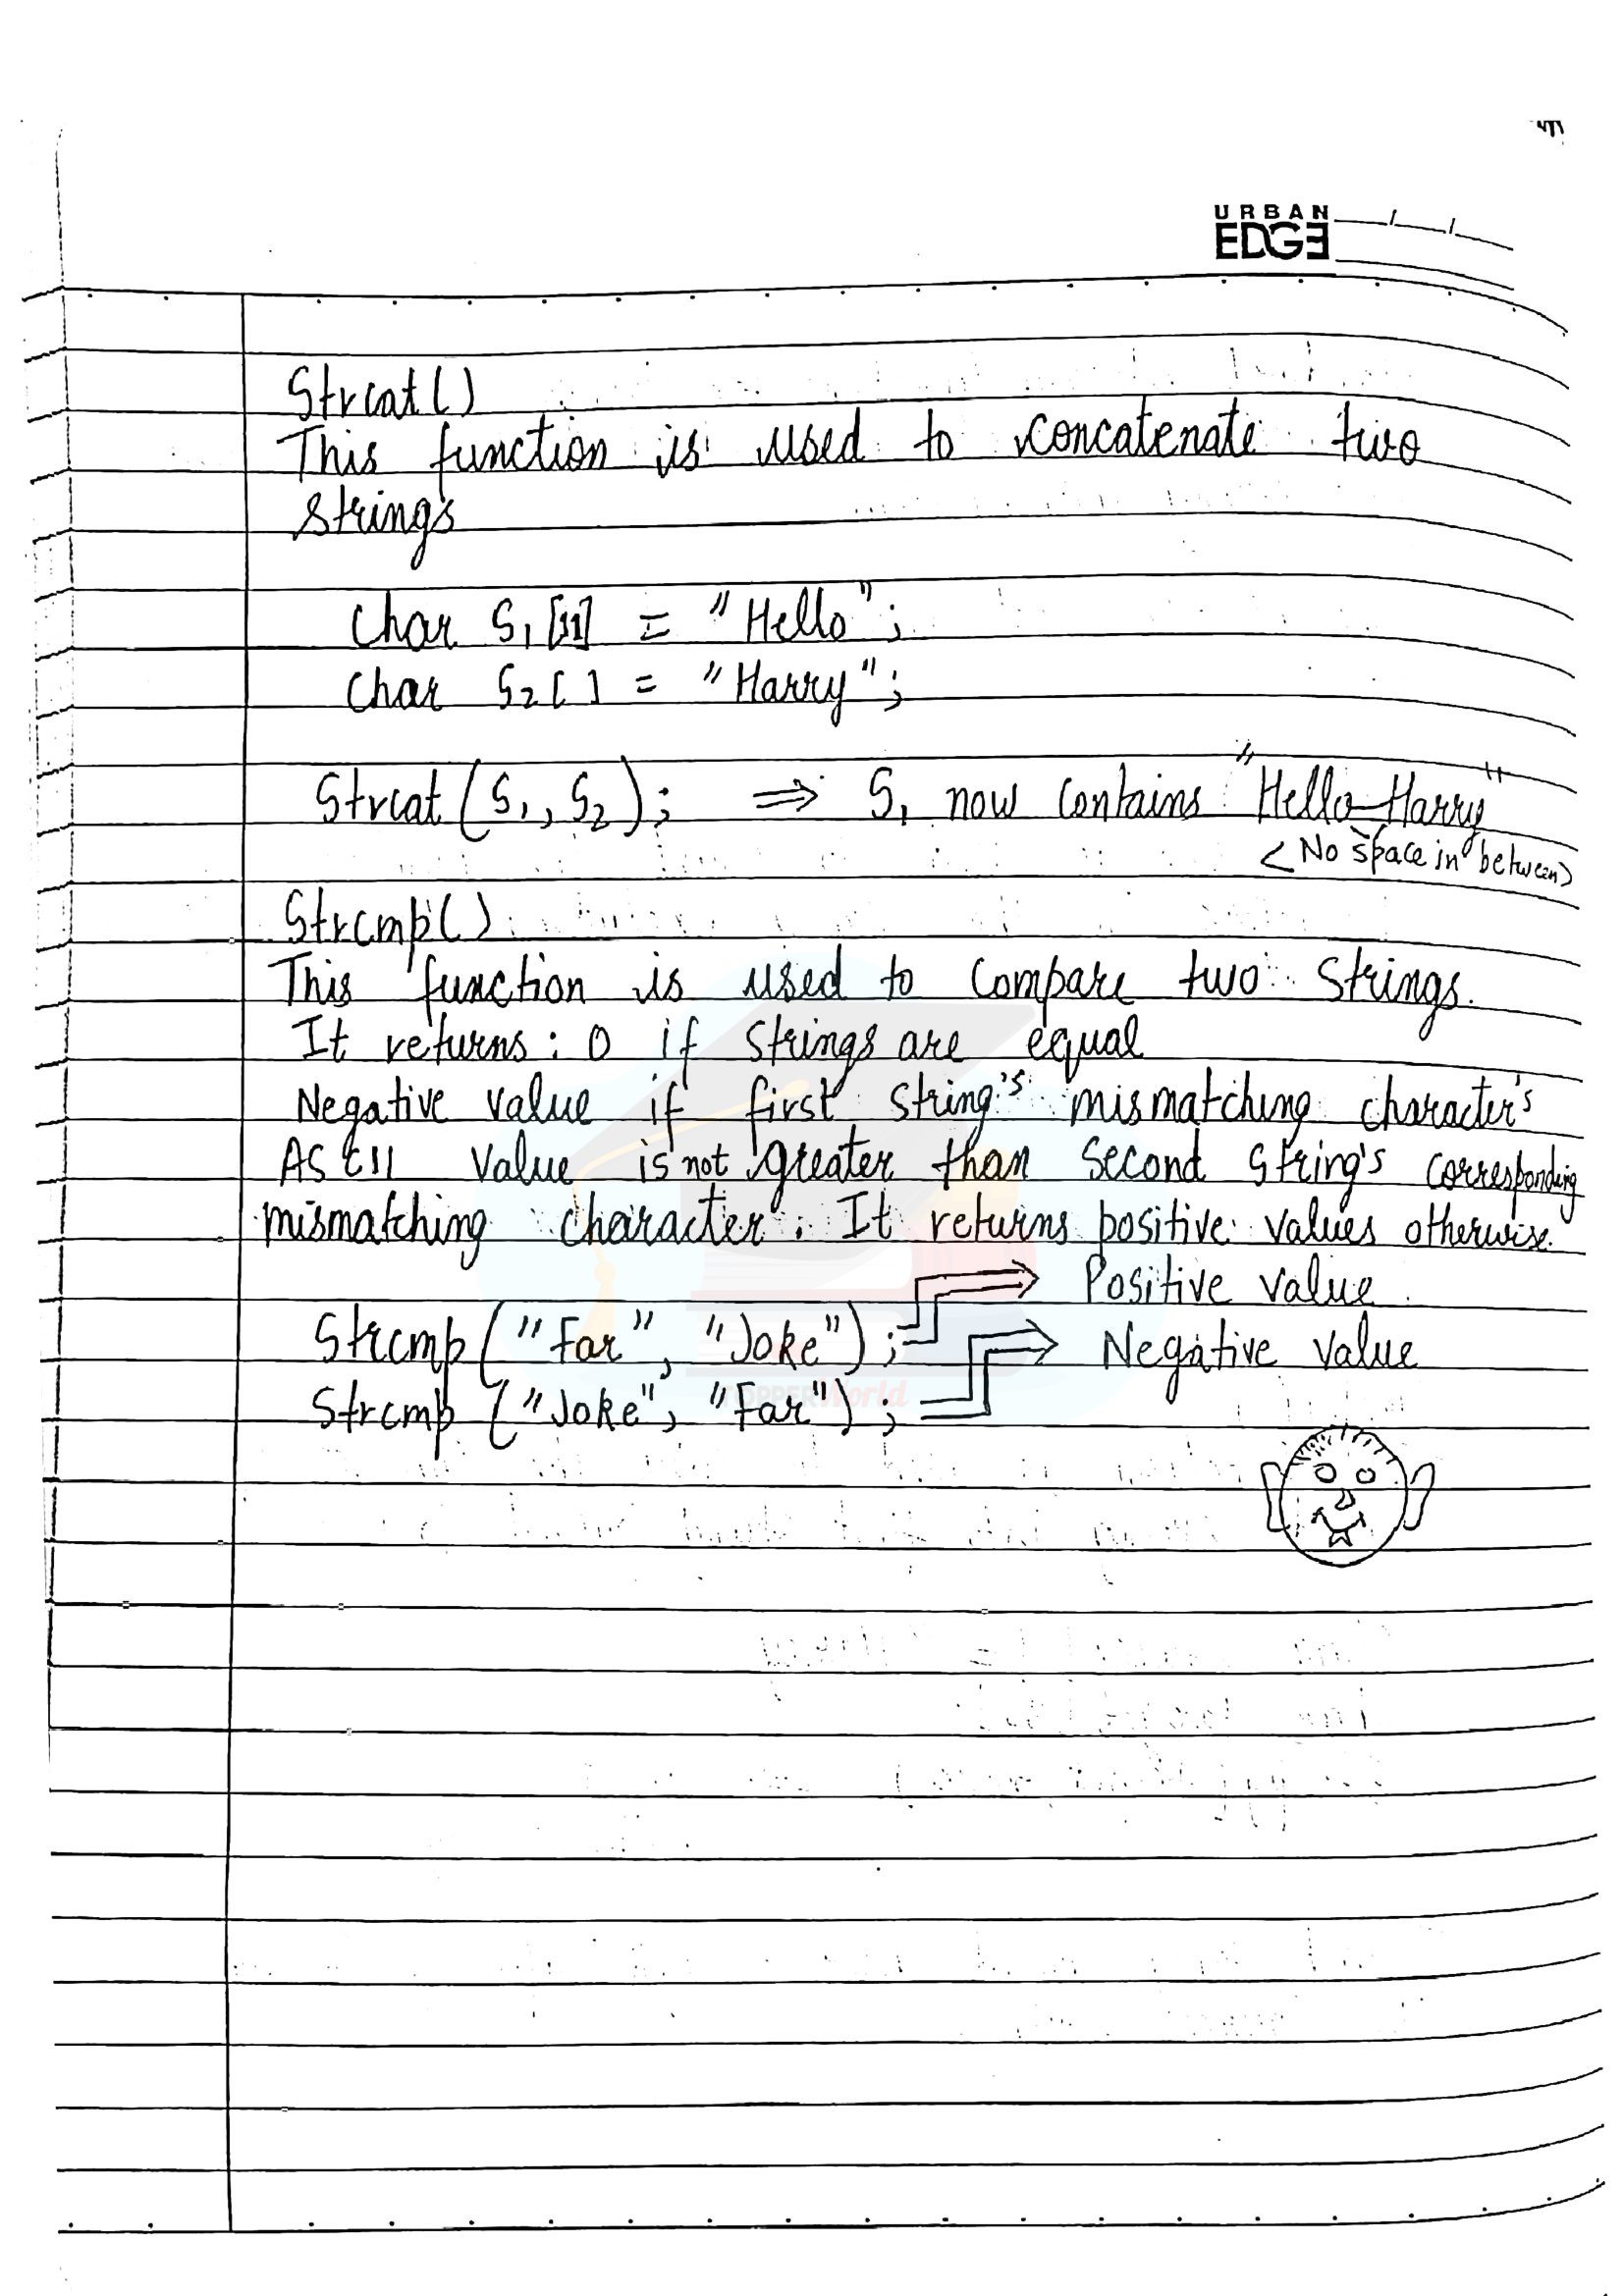 URBAN
EDGE
Strcat()
This function is used to concatenate two
strings
Char S₁[11] = "Hello";
Char S₂[] = "Harry";
Strcat(S₁, S₂); ⇒ S₁ now contains "Hello Harry"
<No space in between>
Strcmp()
This function is used to compare two strings.
It returns: 0 if strings are equal
Negative value if first string's mismatching character's
ASCII value is not greater than second string's corresponding
mismatching character. It returns positive values otherwise.
Positive value
Strcmp("Far", "Joke"); Negative value
Strcmp("Joke", "Far");
TOPPERWorld